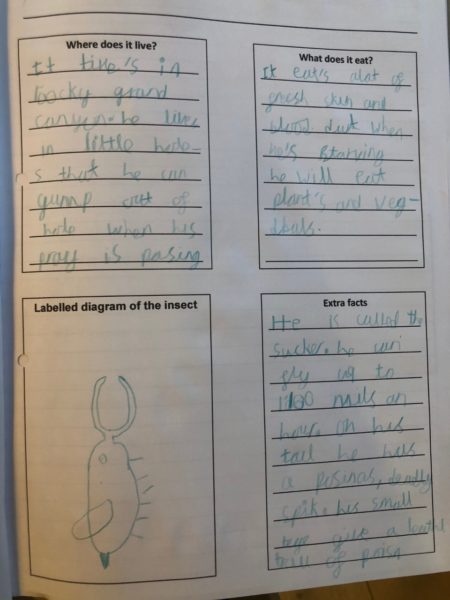 Where does it live?
It live's in
Rocky grand
canyon. he lives
in little hole-
s that he can
gump out of
hole when his
pray is pasing
What does it eat?
It eat's alot of
fresh skin and
blood but when
he's starving
he will eat
plant's and veg-
tbals.
Labelled diagram of the insect
Extra facts
He is called the
sucker. he can
fly up to
1100 mils an
hour. on his
tail he has
a posinas, deadly
spik. his small
give a
of posin